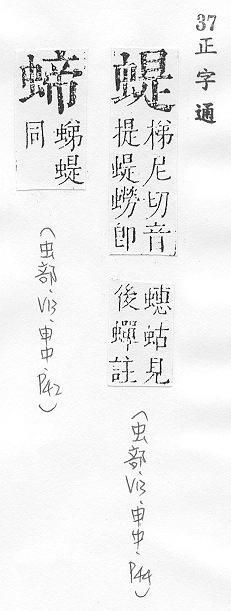 37正字通
蝭
梯尼切音
提蝭蟧即
蟪蛄見
後蟬註
(虫部·V13·申中·P44)
䗖
𧋘蝭
同
(虫部·V13·申中·P42)